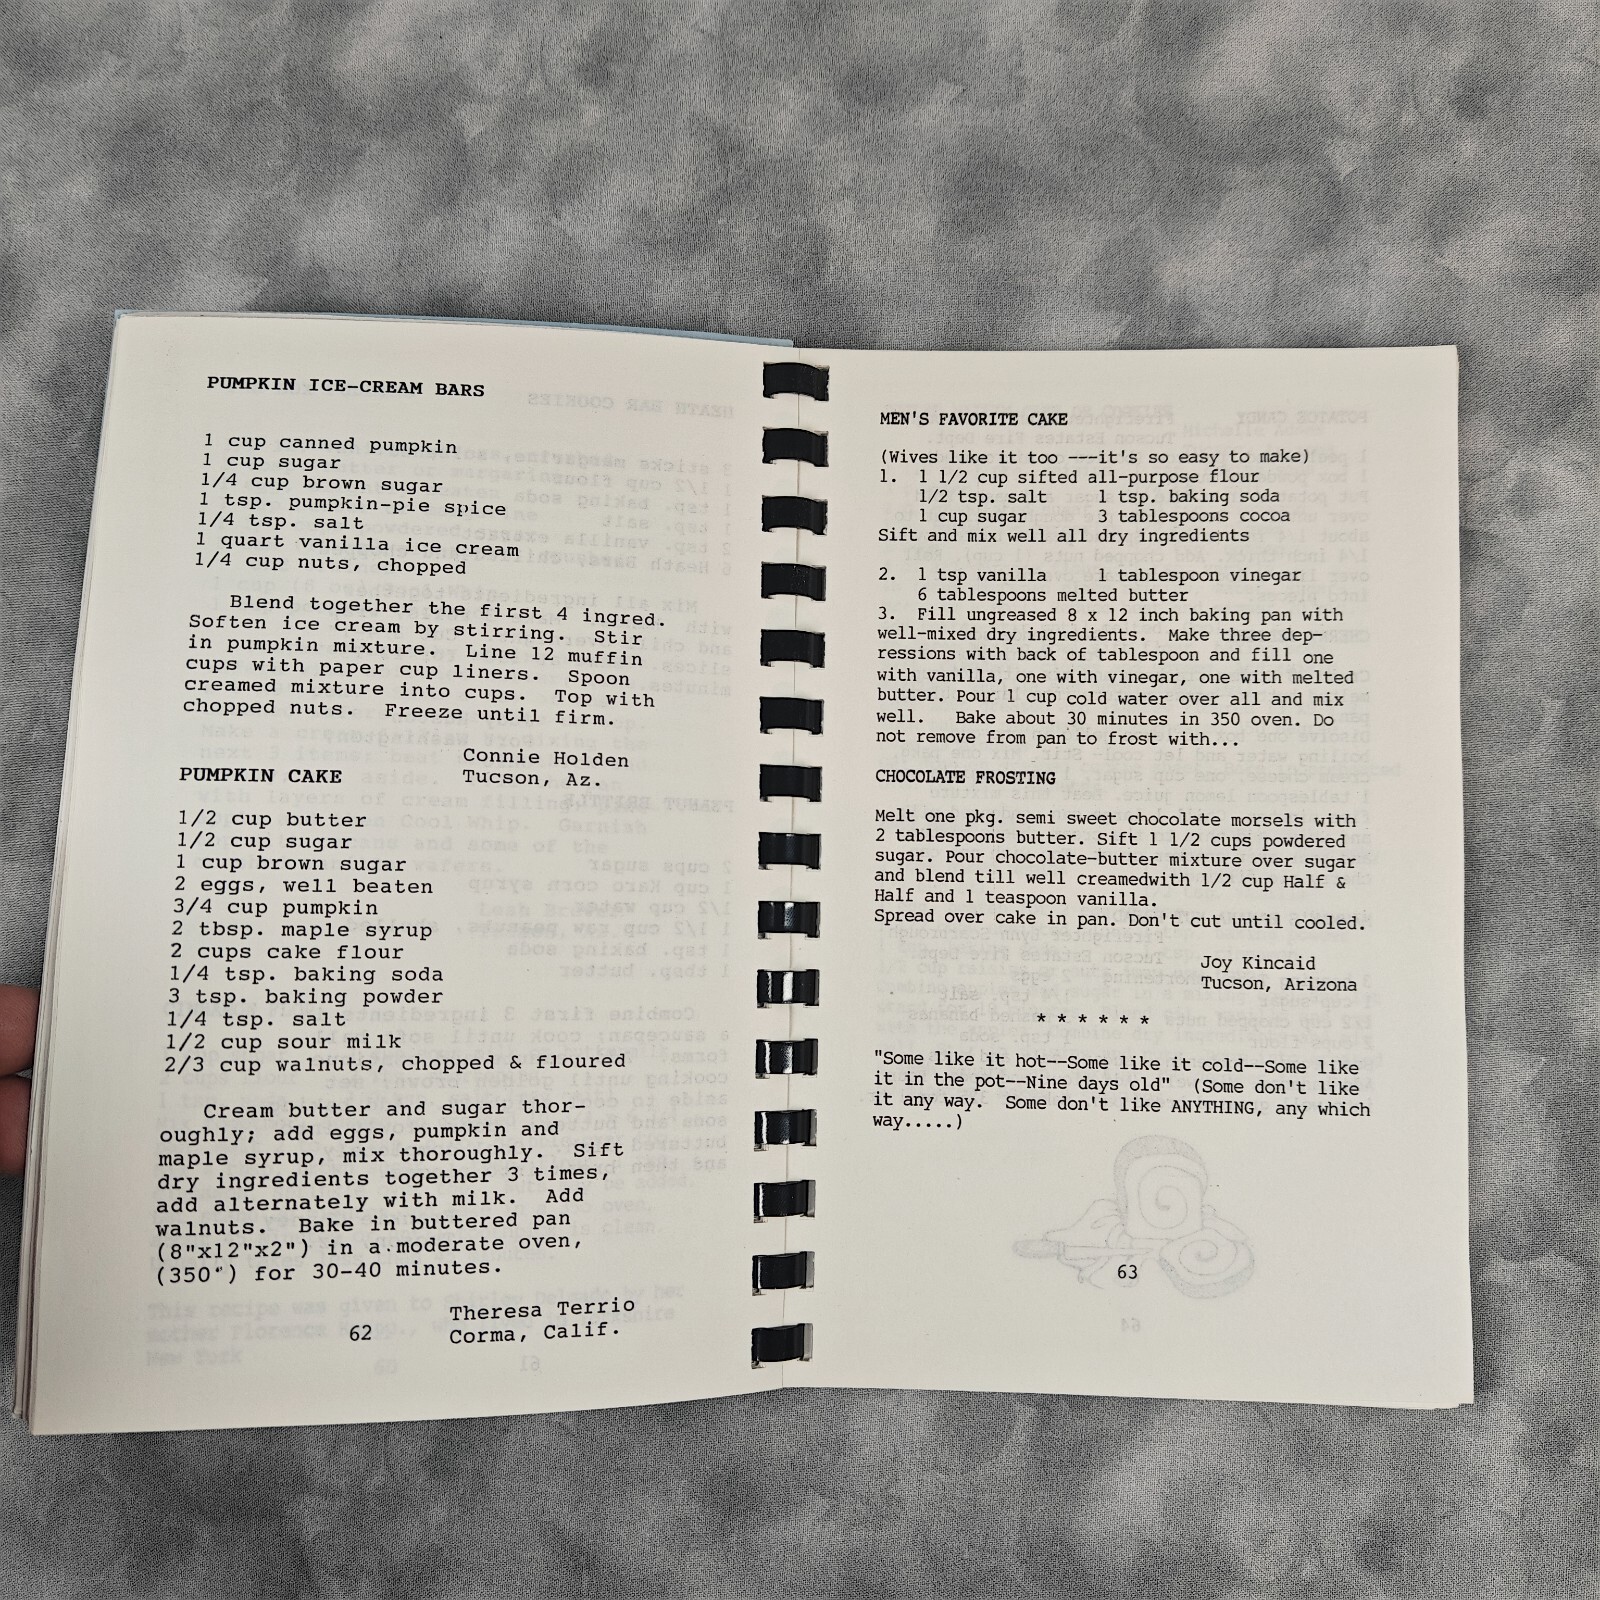 PUMPKIN ICE-CREAM BARS
1 cup canned pumpkin
1 cup sugar
1/4 cup brown sugar
1 tsp. pumpkin-pie spice
1/4 tsp. salt
1 quart vanilla ice cream
1/4 cup nuts, chopped
Blend together the first 4 ingred.
Soften ice cream by stirring. Stir
in pumpkin mixture. Line 12 muffin
cups with paper cup liners. Spoon
creamed mixture into cups. Top with
chopped nuts. Freeze until firm.
Connie Holden
Tucson, Az.
PUMPKIN CAKE
1/2 cup butter
1/2 cup sugar
1 cup brown sugar
2 eggs, well beaten
3/4 cup pumpkin
2 tbsp. maple syrup
2 cups cake flour
1/4 tsp. baking soda
3 tsp. baking powder
1/4 tsp. salt
1/2 cup sour milk
2/3 cup walnuts, chopped & floured
Cream butter and sugar thor-
oughly; add eggs, pumpkin and
maple syrup, mix thoroughly. Sift
dry ingredients together 3 times,
add alternately with milk. Add
walnuts. Bake in buttered pan
(8"x12"x2") in a moderate oven,
(350°) for 30-40 minutes.
Theresa Terrio
Corma, Calif.
62
MEN'S FAVORITE CAKE
(Wives like it too ---it's so easy to make)
1. 1 1/2 cup sifted all-purpose flour
1/2 tsp. salt 1 tsp. baking soda
1 cup sugar 3 tablespoons cocoa
Sift and mix well all dry ingredients
2. 1 tsp vanilla 1 tablespoon vinegar
6 tablespoons melted butter
3. Fill ungreased 8 x 12 inch baking pan with
well-mixed dry ingredients. Make three dep-
ressions with back of tablespoon and fill one
with vanilla, one with vinegar, one with melted
butter. Pour 1 cup cold water over all and mix
well. Bake about 30 minutes in 350 oven. Do
not remove from pan to frost with...
CHOCOLATE FROSTING
Melt one pkg. semi sweet chocolate morsels with
2 tablespoons butter. Sift 1 1/2 cups powdered
sugar. Pour chocolate-butter mixture over sugar
and blend till well creamedwith 1/2 cup Half &
Half and 1 teaspoon vanilla.
Spread over cake in pan. Don't cut until cooled.
Joy Kincaid
Tucson, Arizona
* * * * * *
"Some like it hot--Some like it cold--Some like
it in the pot--Nine days old" (Some don't like
it any way. Some don't like ANYTHING, any which
way.....)
63